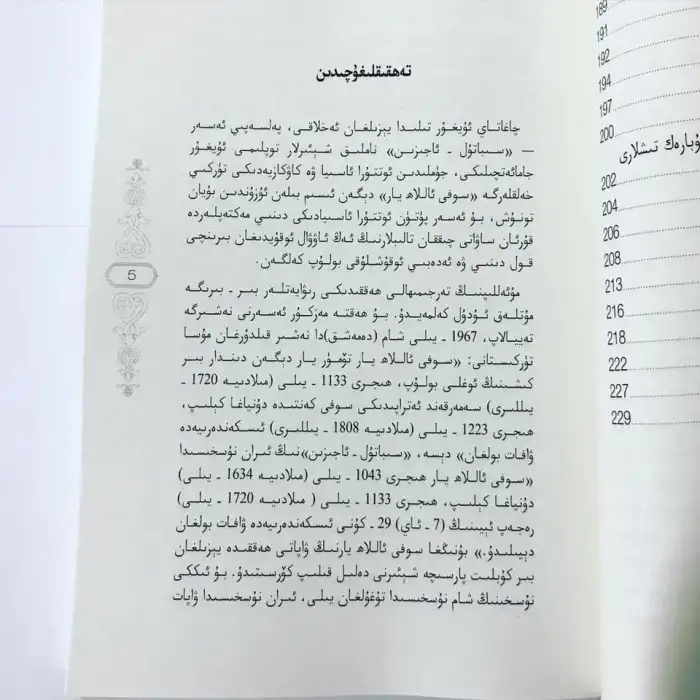 تەھقىقلىغۇچىدىن
چاغاتاي ئۇيغۇر تىلىدا يېزىلغان ئەخلاقى، پەلسەپىي ئەسەر
— «سىباتۇل - ئاجىزىن» ناملىق شېئىرلار توپلىمى ئۇيغۇر
جامائەتچىلىكى، جۈملىدىن ئوتتۇرا ئاسىيا ۋە كاۋكازىيەدىكى تۈركىي
خەلقلەرگە «سوفى ئاللاھ يار» دېگەن ئىسىم بىلەن ئۇزۇندىن بۇيان
تونۇش، بۇ ئەسەر پۈتۈن ئوتتۇرا ئاسىيادىكى دىنىي مەكتەپلەردە
قۇرئان ساۋاتى چىققان تالىبلارنىڭ ئەڭ ئاۋۋال ئوقۇيدىغان بىرىنچى
قول دىنىي ۋە ئەدەبىي ئوقۇشلۇقى بولۇپ كەلگەن.
مۇئەللىپنىڭ تەرجىمىھالى ھەققىدىكى رىۋايەتلەر بىر - بىرىگە
مۇتلەق ئۇدۇل كەلمەيدۇ. بۇ ھەقتە مەزكۇر ئەسەرنى نەشىرگە
تەييالاپ، 1967 - يىلى شام (دەمەشق)دا نەشىر قىلدۇرغان مۇسا
تۈركىستانى: «سوفى ئاللاھ يار تۆمۈر يار دېگەن دىندار بىر
كىشىنىڭ ئوغلى بولۇپ، ھىجرى 1133 - يىلى (مىلادىيە 1720 -
يىللىرى) سەمەرقەند ئەتراپىدىكى سوفى كەنتىدە دۇنياغا كېلىپ،
ھىجرى 1223 - يىلى (مىلادىيە 1808 - يىللىرى) ئىسكەندەرىيەدە
ۋافات بولغان» دېسە، «سىباتۇل - ئاجىزىن»نىڭ ئىران نۇسخىسىدا
«سوفى ئاللاھ يار ھىجرى 1043 - يىلى (مىلادىيە 1634 - يىلى)
دۇنياغا كېلىپ، ھىجرى 1133 - يىلى ( مىلادىيە 1720 - يىلى)
رەجەپ ئېيىنىڭ (7 - ئاي) 29 - كۈنى ئىسكەندەرىيەدە ۋافات بولغان
دېيىلىدۇ.» بۇنىڭغا سوفى ئاللاھ يارنىڭ ۋاپاتى ھەققىدە يېزىلغان
بىر كۇبلېت پارىسچە شېئىرنى دەلىل قىلىپ كۆرسىتىدۇ. بۇ ئىككى
نۇسخىنىڭ شام نۇسخىسىدا تۇغۇلغان يىلى، ئىران نۇسخىسىدا ۋاپات
5
189
191
192
194
197
200
ۇبارەك تىشلارى
202
204
206
208
213
216
218
222
227
229